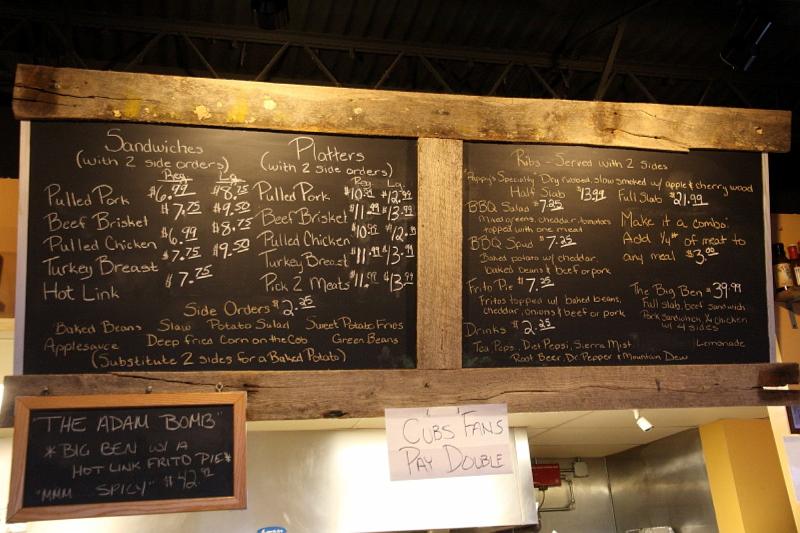 Sandwiches
(with 2 side orders)
Reg. Lg.
Pulled Pork $6.99 $8.75
Beef Brisket $7.75 $9.50
Pulled Chicken $6.99 $8.75
Turkey Breast $7.75 $9.50
Hot Link $7.75
Platters
(with 2 side orders)
Reg. Lg.
Pulled Pork
Beef Brisket
Pulled Chicken
Turkey Breast
Pick 2 Meats
Side Orders $2.25
Baked Beans Slaw Potato Salad Sweet Potato Fries
Applesauce Deep fried Corn on the Cob Green Beans
(Substitute 2 sides for a Baked Potato)
Ribs - Served with 2 sides
Pappy's Specialty Dry rubbed, slow smoked w/ apple & cherry wood
Half Slab $13.99 Full Slab $21.99
BBQ Salad $7.25
Mixed greens, cheddar, tomatoes
topped with one meat
BBQ Spud $7.25
Baked potato w/ cheddar,
baked beans & beef or pork
Frito Pie $7.25
Fritos topped w/ baked beans,
cheddar, onions & beef or pork
Drinks $2.25
Tea, Pepsi, Diet Pepsi, Sierra Mist
Root Beer, Dr. Pepper & Mountain Dew
Lemonade
Make it a combo:
Add 1/4 lb of meat to
any meal $3.00
The Big Ben $39.99
Full slab, beef sandwich
Pork sandwich, 1/4 chicken
w/ 4 sides
THE ADAM BOMB"
*BIG BEN W/ A
HOT LINK FRITO PIE*
"MMM SPICY"
CUBS FANS
PAY DOUBLE